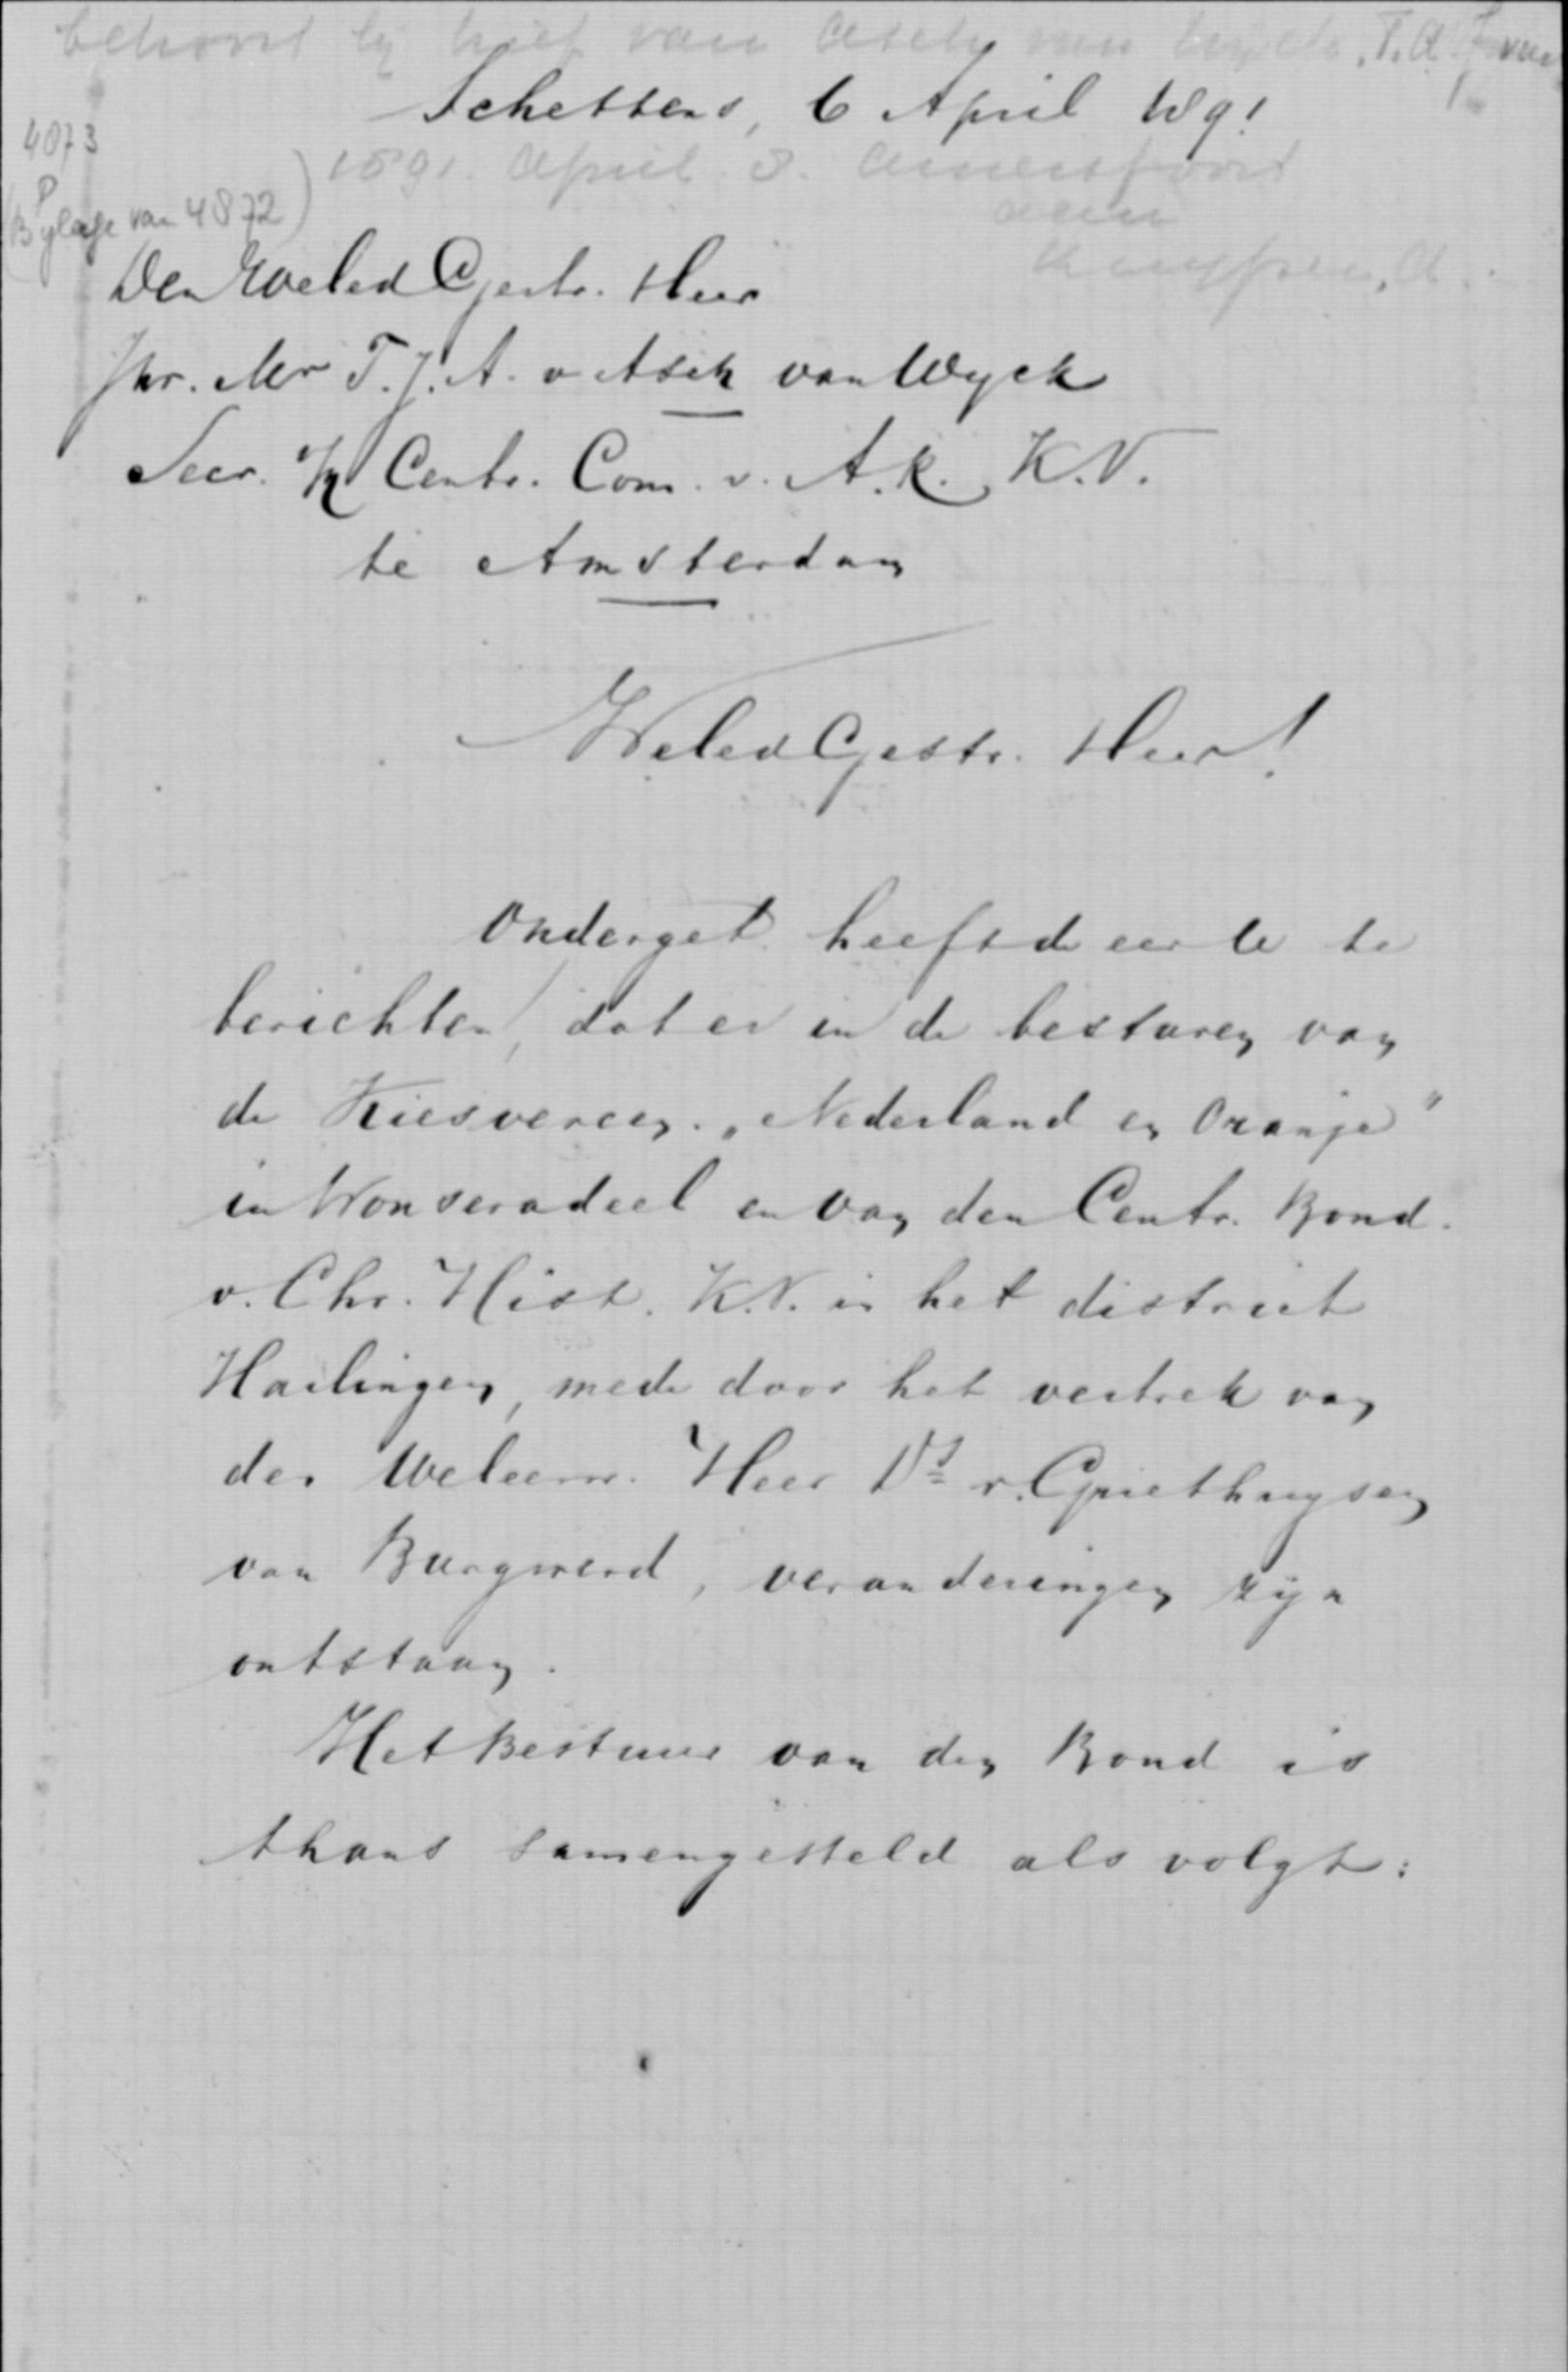 behoort bij brief van Asch van Wyck, T.A.J. van
Schettens, 6 April 1891
4073
1891. April 8. Amersfoort
(Bylage van 4872)
aan
Kuyper, A.
Den WeledGestr. Heer
Jhr. Mr T. J. A. v Asch van Wyck
Secr. v/h Centr. Com. v. A.R. K.V.
te Amsterdam
WeledGestr. Heer!
Onderget heeft de eer U te
berichten, dat er in de besturen van
de Kiesvereen. „Nederland en Oranje"
in Wonseradeel en van den Centr. Bond.
v. Chr. Hist. K.V. in het district
Harlingen, mede door het vertrek van
den Weleerw. Heer Ds v. Griethuysen
van Burgwerd, veranderingen zijn
ontstaan.
Het Bestuur van den Bond is
thans samengesteld als volgt: